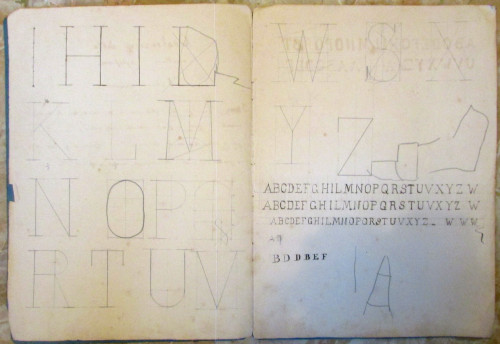 I H I D
K L M
N O P
R T U V
W S X
Y Z
ABCDEFGHILMNOPQRSTUVXYZ W
ABCDEFGHILMNOPQRSTUVXYZ W
ABCDEFGHILMNOPQRSTUVXYZ W W W
BDDBEF
A